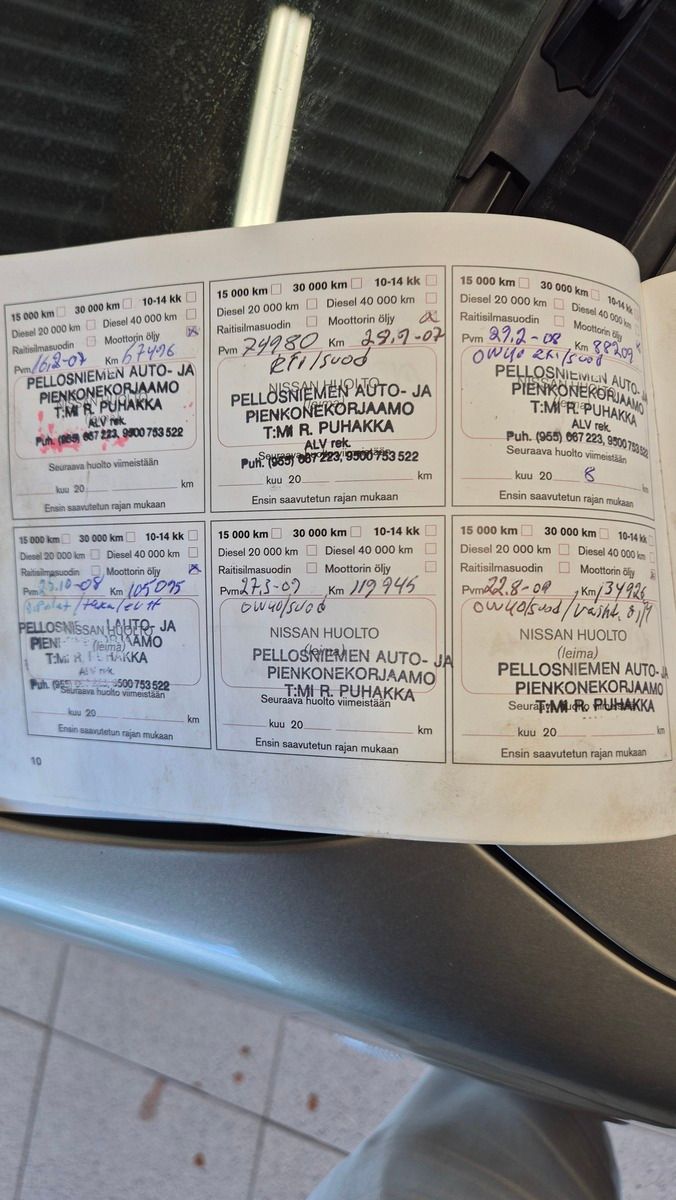 15 000 km 30 000 km 10-14 kk
Diesel 20 000 km Diesel 40 000 km
Raitisilmasuodin Moottorin öljy
Pvm 16,2-07 Km 67496
PELLOSNIEMEN AUTO- JA
PIENKONEKORJAAMO
T:MI R. PUHAKKA
ALV rek.
Puh. (955) 667 223, 9500 753 522
Seuraava huolto viimeistään
kuu 20 km
Ensin saavutetun rajan mukaan
15 000 km 30 000 km 10-14 kk
Diesel 20 000 km Diesel 40 000 km
Raitisilmasuodin Moottorin öljy
Pvm 74980 Km 29,9-07
NISSAN HUOLTO
PELLOSNIEMEN AUTO- JA
PIENKONEKORJAAMO
(leima)
T:MI R. PUHAKKA
ALV rek.
Seuraava huolto viimeistään
Puh. (955) 667 223, 9500 753 522
kuu 20 km
Ensin saavutetun rajan mukaan
15 000 km 30 000 km 10-14 kk
Diesel 20 000 km Diesel 40 000 km
Raitisilmasuodin Moottorin öljy
Pvm 29,2-08 Km 88209
PELLOSNIEMEN AUTO- JA
PIENKONEKORJAAMO
T:MI R. PUHAKKA
ALV rek.
Puh. (955) 667 223, 9500 753 522
Seuraava huolto viimeistään
kuu 20 8 km
Ensin saavutetun rajan mukaan
15 000 km 30 000 km 10-14 kk
Diesel 20 000 km Diesel 40 000 km
Raitisilmasuodin Moottorin öljy
Pvm 23.10-08 Km 105095
NISSAN HUOLTO
AUTO- JA
(leima)
T:MI R. PUHAKKA
9500 753 522
Seuraava huolto viimeistään
kuu 20 km
Ensin saavutetun rajan mukaan
15 000 km 30 000 km 10-14 kk
Diesel 20 000 km Diesel 40 000 km
Raitisilmasuodin Moottorin öljy
Pvm 27,3-09 Km 119945
0W40/suod
NISSAN HUOLTO
(leima)
PELLOSNIEMEN AUTO- JA
PIENKONEKORJAAMO
T:MI R. PUHAKKA
Seuraava huolto viimeistään
kuu 20 km
Ensin saavutetun rajan mukaan
15 000 km 30 000 km 10-14 kk
Diesel 20 000 km Diesel 40 000 km
Raitisilmasuodin Moottorin öljy
Pvm 22.8-09 Km 134926
0W40/suod/
NISSAN HUOLTO
(leima)
PELLOSNIEMEN AUTO- JA
PIENKONEKORJAAMO
T:MI R. PUHAKKA
kuu 20 km
Ensin saavutetun rajan mukaan
10